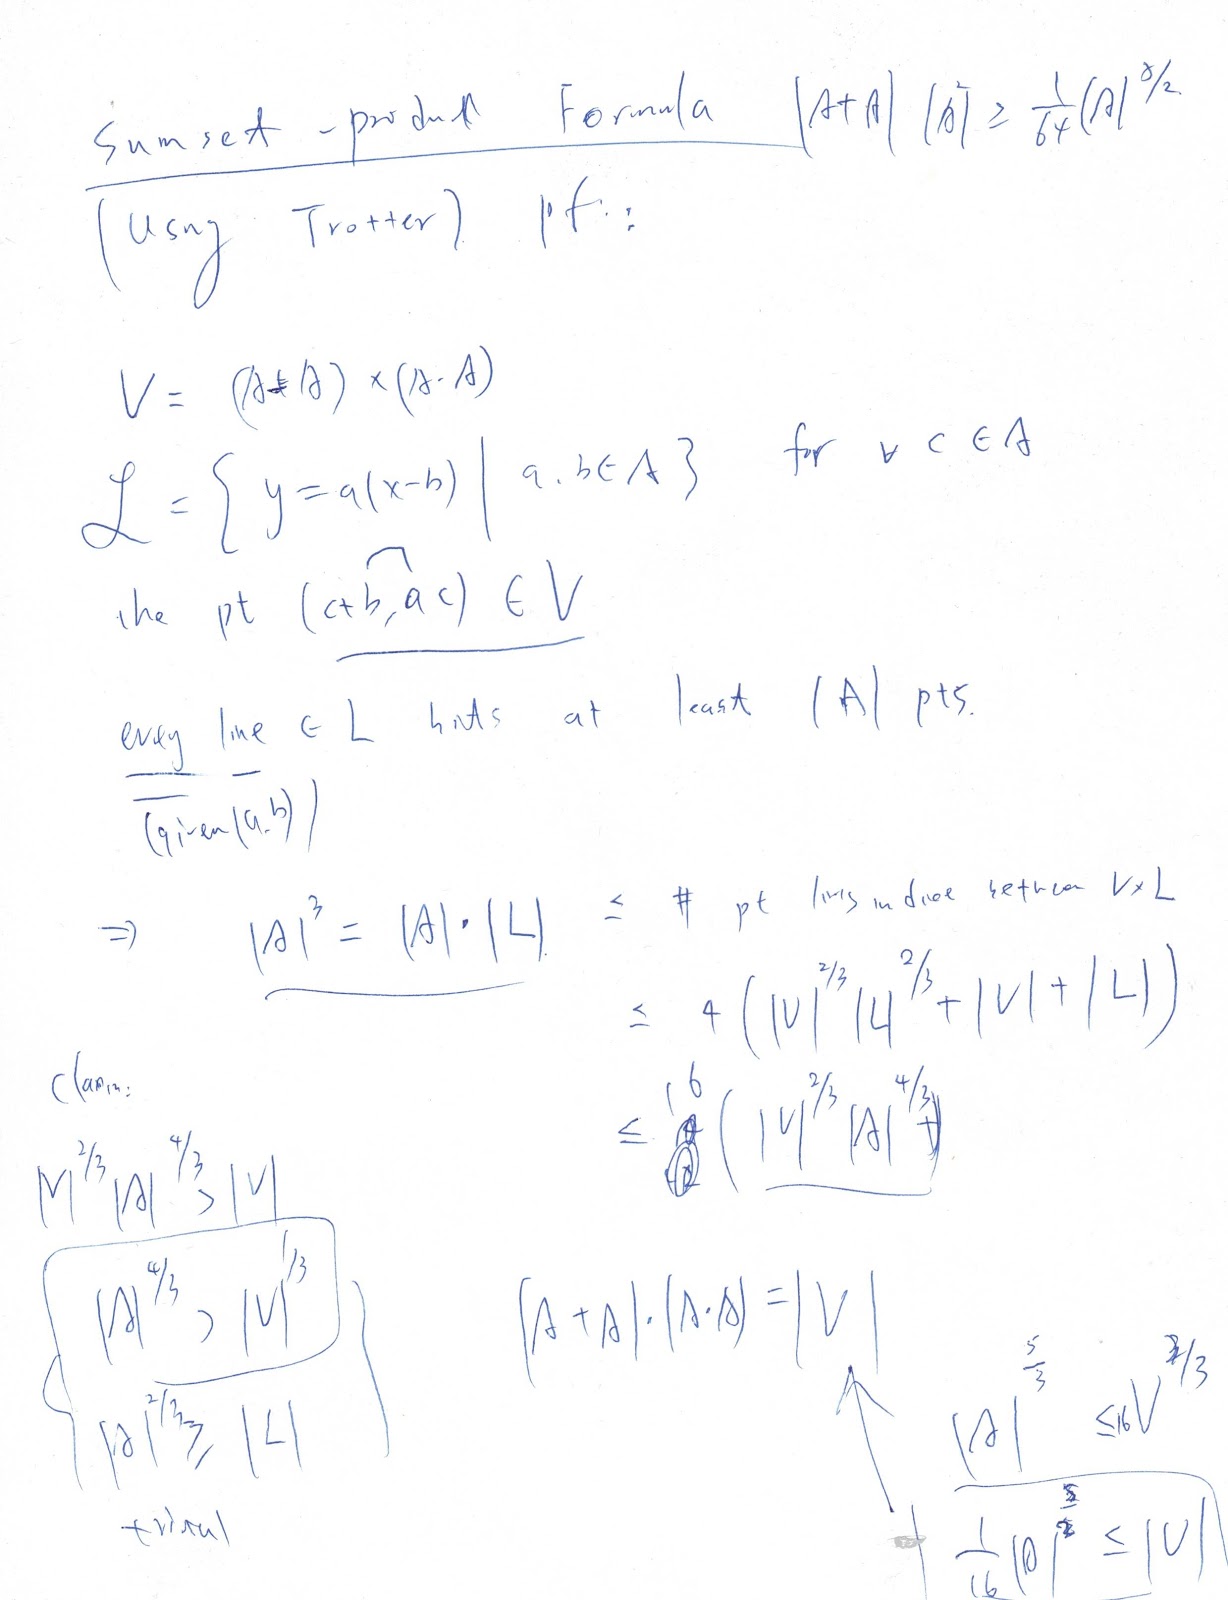 Sumset-product Formula |A+A| |A²| ≥ 1/64 |A|^5/2
(Usng Trotter) pf.:
V = (A+A) × (A·A)
L = { y = a(x-b) | a.b ∈ A } for ∀ c ∈ A
the pt (c+b, ac) ∈ V
every line ∈ L hits at least |A| pts.
(given (a.b))
⇒ |A|^3 = |A|·|L| ≤ # pt between V×L
≤ 4 (|V|^2/3 |L|^2/3 + |V| + |L|)
≤ 16 (|V|^2/3 |A|^4/3
Claim:
|V|^2/3 |A|^4/3 > |V|
|A|^4/3 > |V|^1/3
|A|^2/3 ≥ |L|
trivial
|A+A|·|A·A| = |V|
|A|^5/3 ≤ 16 V^2/3
1/16 |A|^5/2 ≤ |V|